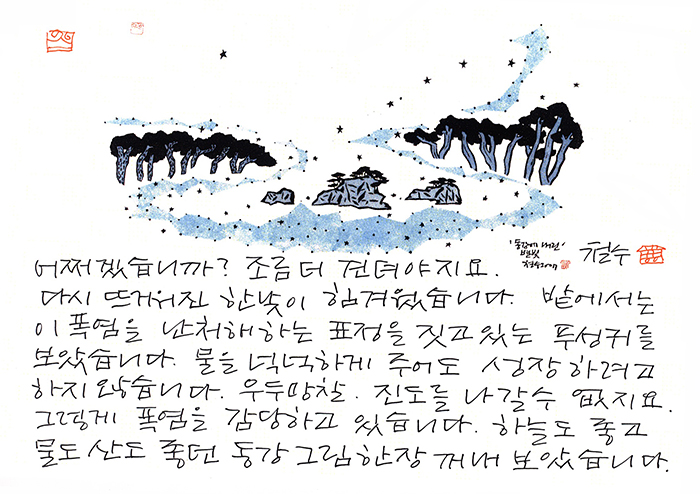 '동강에 내린'
별빛
철수
어쩌겠습니까? 조금 더 견뎌야지요.
다시 뜨거워진 한낮이 힘겨웠습니다. 밭에서는
이 폭염을 난처해 하는 표정을 짓고 있는 푸성귀를
보았습니다. 물을 넉넉하게 주어도 성장하려고
하지 않습니다. 우두망찰. 진도를 나갈 수 없지요.
그렇게 폭염을 감당하고 있습니다. 하늘도 좋고
물도 산도 좋던 동강 그림 한 장 꺼내 보았습니다.